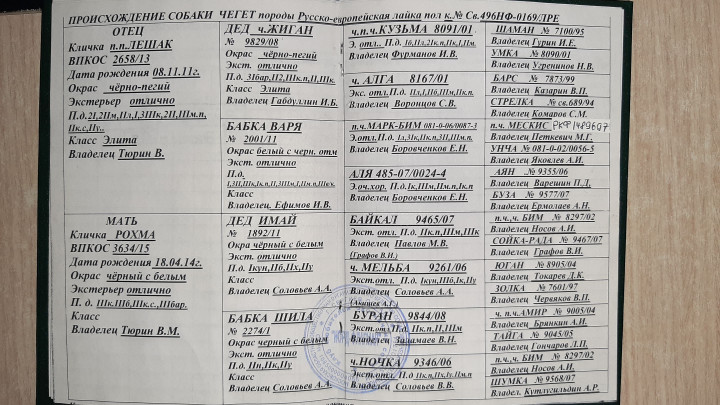 ПРОИСХОЖДЕНИЕ СОБАКИ ЧЕГЕТ породы Русско-европейская лайка пол к.№ Св.496НФ-0169/ЛРЕ
ОТЕЦ
Кличка п.п.ЛЕШАК
ВПКОС 2658/13
Дата рождения 08.11.11г.
Окрас чёрно-пегий
Экстерьер отлично
Класс Элита
Владелец Тюрин В.
МАТЬ
Кличка РОХМА
ВПКОС 3634/15
Дата рождения 18.04.14г.
Окрас чёрный с белым
Экстерьер отлично
П. д. IIIк.IIIб,IIIк.с.,IIIбар.
Класс
Владелец Тюрин В.М.
ДЕД ч.ЖИГАН
№ 9829/08
Окрас чёрно-пегий
Экст. отлично
Класс Элита
Владелец Габдуллин И.Б.
БАБКА ВАРЯ
№ 2001/11
Окрас белый с черн. отм
Экст. отлично
П.д.
Класс
Владелец. Ефимов И.В.
ДЕД ИМАЙ
№ 1892/11
Окра чёрный с белым
Экст. отлично
П.д. Iкун,IIб,IIх,IIу
Класс
Владелец Соловьев А.А.
БАБКА ШИЛА
№ 2274/1
Окрас черный с белым
Экст. отлично
П.д. IIп,IIк,IIу
Класс
Владелец Соловьев А.А.
ч.п.ч.КУЗЬМА 8091/01
Владелец Фурманов И.В.
ч. АЛГА 8167/01
Владелец Воронцов С.В.
п.ч.МАРК-БИМ 081-0-06/0087-3
Владелец Боровченков Е.Н.
АЛЯ 485-07/0024-4
Владелец Боровченков Е.Н.
БАЙКАЛ 9465/07
Экст. отл. П.д. IIк,IIм,IIIк
Владелец Павлов М.В.
(Графов В.И.)
ч. МЕЛЬБА 9261/06
Экст. отл. П.д. Iкун,IIк,IIу
Владелец Соловьев А.А.
БУРАН 9844/08
Экст.отл П.д. Iк.п,II,IIм
Владелец
ч.НОЧКА 9346/06
Владелец Соловьев В.В.
ШАМАН № 7100/95
Владелец Гурин И.Е.
УМКА № 8090/01
Владелец Угренинов Н.В.
БАРС № 7873/99
Владелец Казарин В.П.
СТРЕЛКА № св.689/94
Владелец Комаров С.М.
п.ч. МЕСКИС РКФ1489607
Владелец Петкевич М.Г.
УНЧА № 081-0-02/0056-5
Владелец Яковлев А.И.
АЯН № 9355/06
Владелец Варешин П.Д.
БУЗА № 9577/07
Владелец Ермолаев А.Н.
п.ч.,ч. БИМ № 8297/02
Владелец Носов А.И.
СОЙКА-РАДА № 9467/07
Владелец Графов В.И.
ЮГАН № 8905/04
Владелец Токарев Д.К.
ЗОЛКА № 7601/97
Владелец Червяков В.П.
ч. п.ч.АМИР № 9005/04
Владелец Брянкин А.И.
ТАЙГА № 9045/05
Владелец Гончаров Л.П.
п.ч.,ч. БИМ № 8297/02
Владелец Носов А.И.
ШУМКА № 9568/07
Владел. Кутлугильдин А.Р.